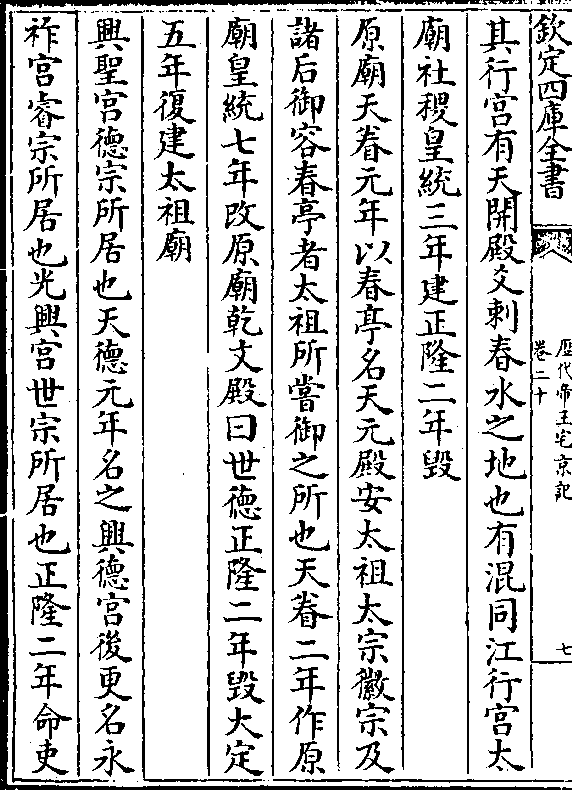 欽定四庫全書
歴代帝王宅京記
卷二十
七
其行宮有天開殿爻剌春水之地也有混同江行宮太
廟社稷皇統三年建正隆二年毀
原廟天眷元年以春亭名天元殿安太祖太宗徽宗及
諸后御容春亭者太祖所嘗御之所也天眷二年作原
廟皇統七年改原廟乾文殿曰世德正隆二年毀大定
五年復建太祖廟
興聖宮德宗所居也天德元年名之興德宮後更名永
祚宮睿宗所居也光興宮世宗所居也正隆二年命吏